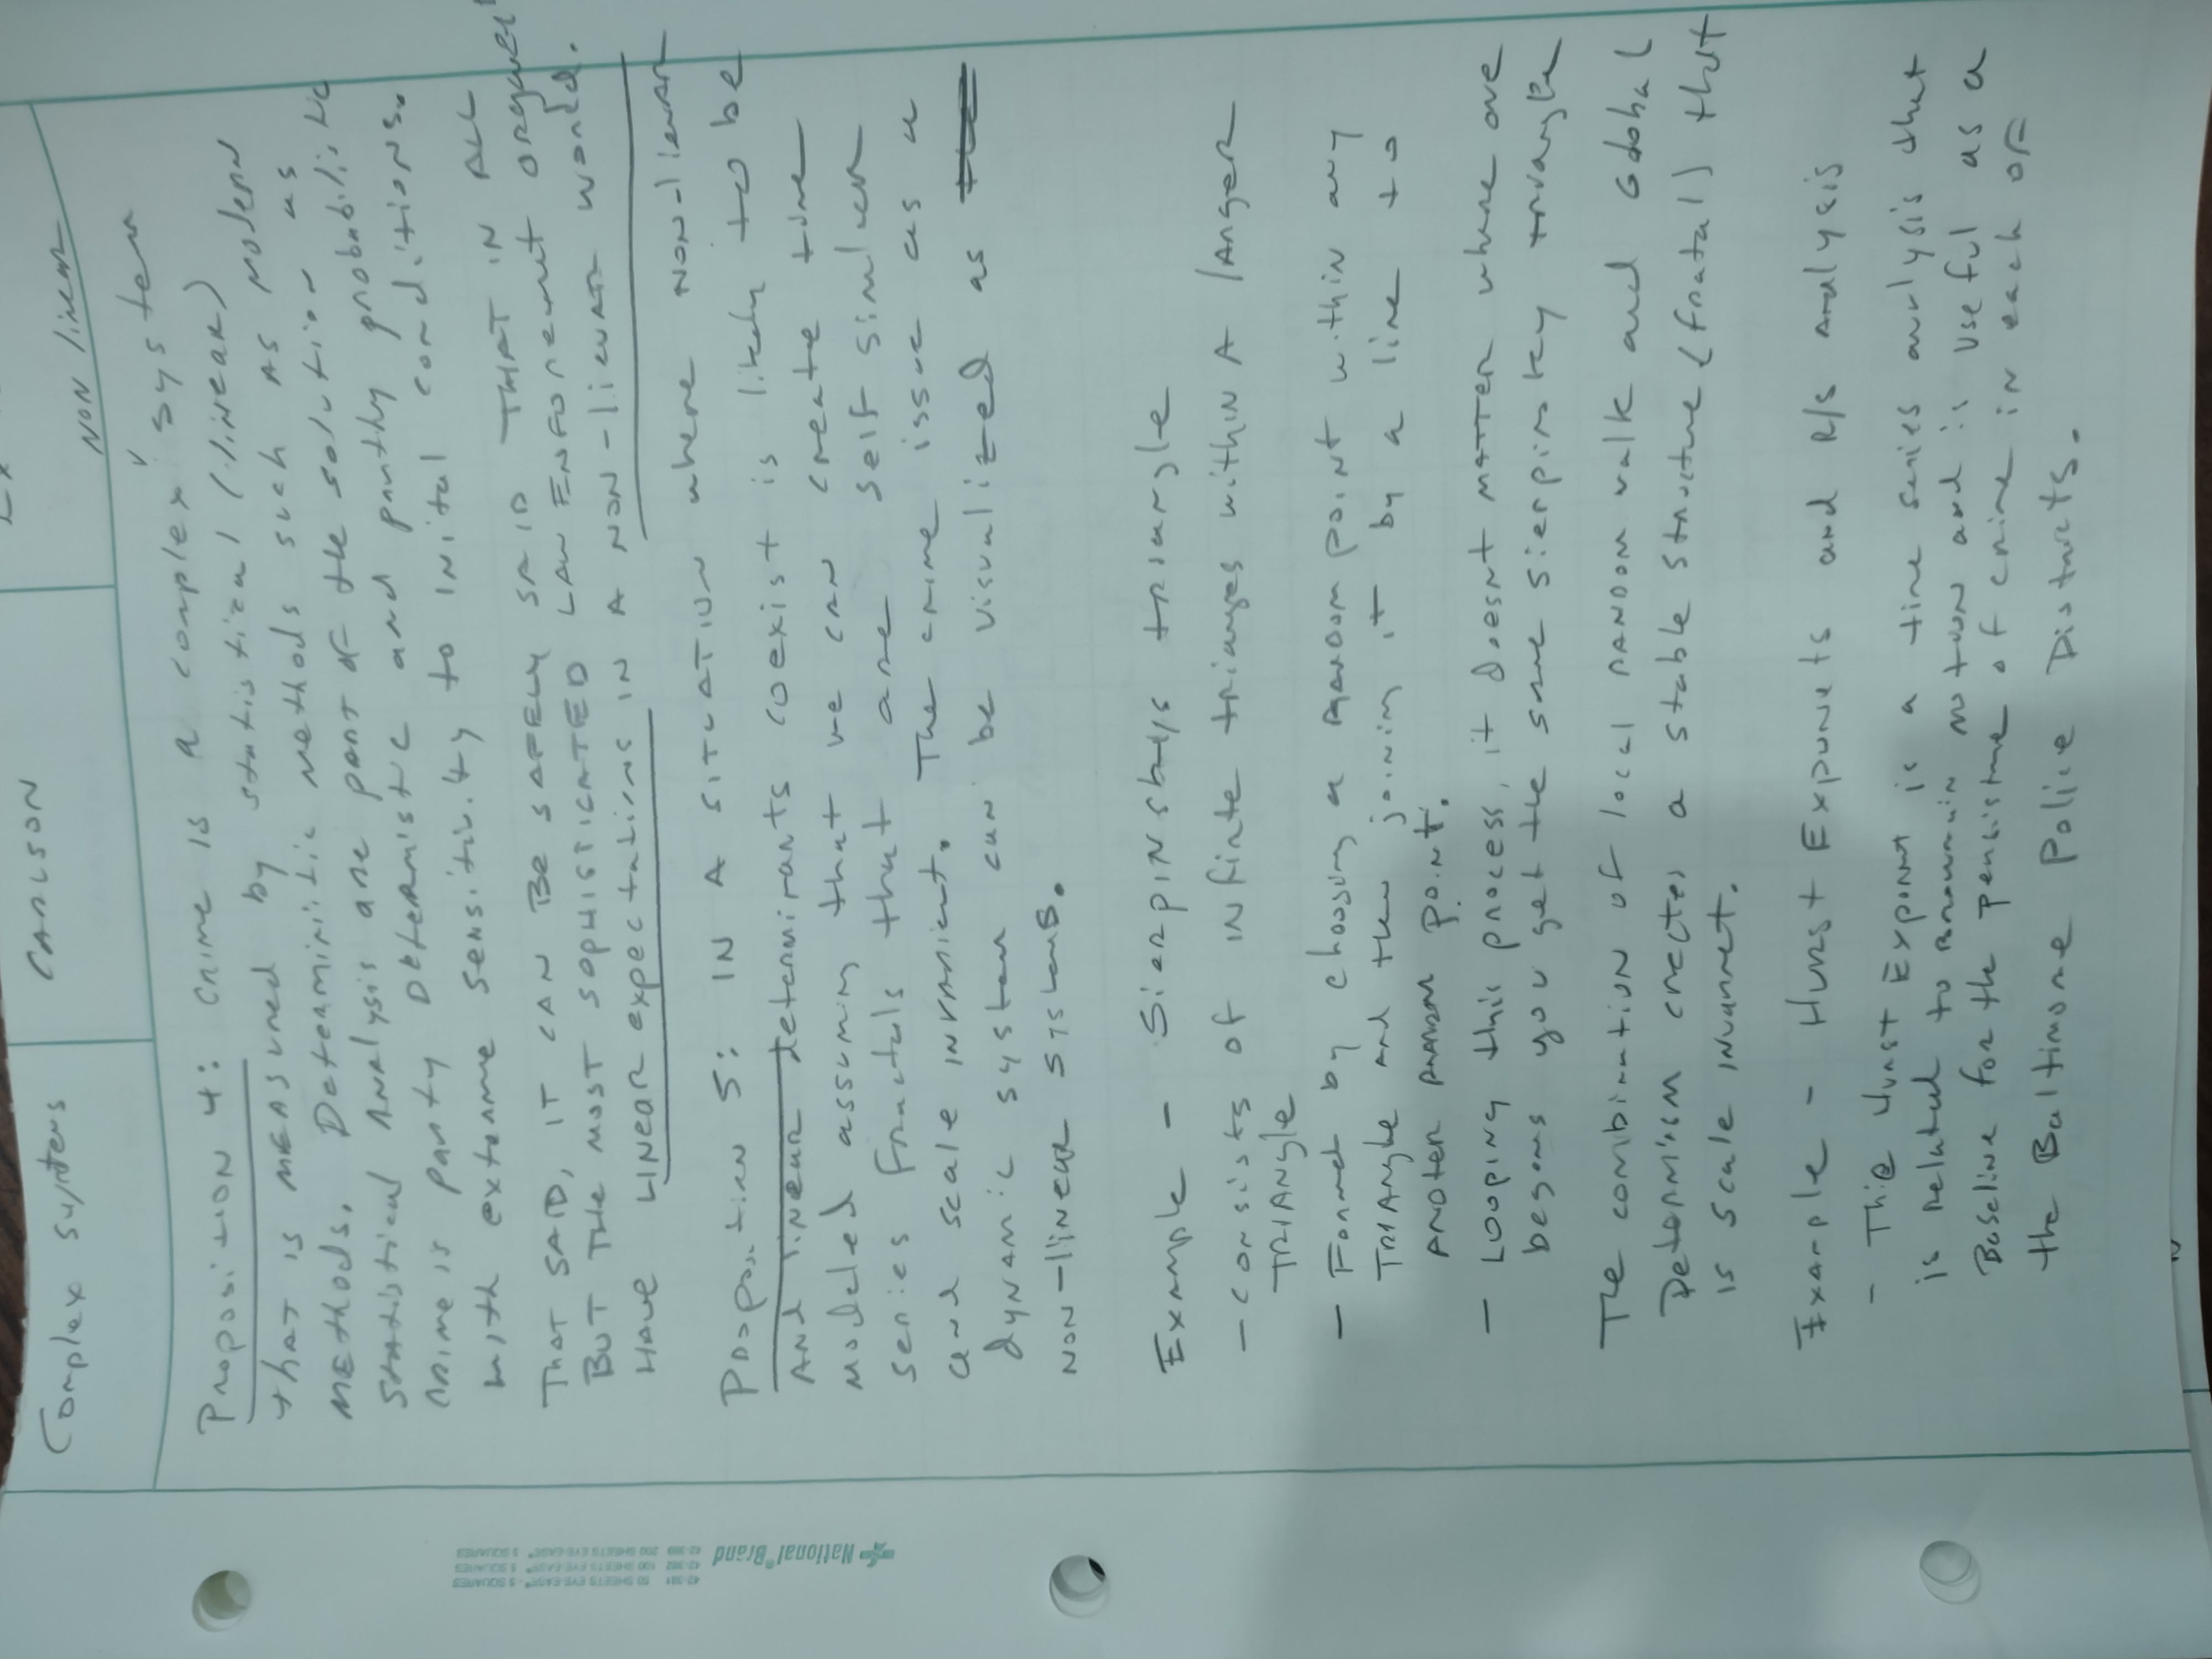 Complex systems
CARLSON
NON linear
Proposition 4: Crime is a complex ✓ system
that is MEASured by statistical (linear)
METHods. Deterministic methods such as modern
Statistical Analysis are part of the solution as
Crime is party Determistic and parthy probabilistic
with extreme sensitivity to inital conditions.
That SAID, IT CAN BE SAFELY SAID THAT IN ALL
BUT THE MOST SOPHISTICATED LAW ENForcement
HAVE LINEAR expectations IN A NON-lienar world.
Proposition 5: IN A SITUATION where NON-lienar
And linear determinants coexist is likely to be
Modeled assuming that we can create time
series fractals that are self similar
and scale invarient. The crime issue as a
dynamic system can be visualized as
NON-linear systems.
Example - Sierpinskys triangle
- consists of infinte trianges within A larger
TRIANgle
- Formed by choosing a Random point within any
TRIAngle and then joining it by a line to
anoter random point.
- Looping this process, it doesnt matter where one
begans you get the same sierpinskey triangle
The combination of local random walk and Global
Determism creates a stable structure (fratal) that
is scale invarient.
Example - Hurst Exponets and R/S Analysis
- The Hurst Exponent is a time series analysis that
is related to motion and is useful as a
Baseline for the persistance of crime in each of
the Baltimore Police Districts.
National® Brand
42-381 50 SHEETS EYE-EASE® - 5 SQUARES
42-382 100 SHEETS EYE-EASE® 5 SQUARES
42-389 200 SHEETS EYE-EASE® 5 SQUARES